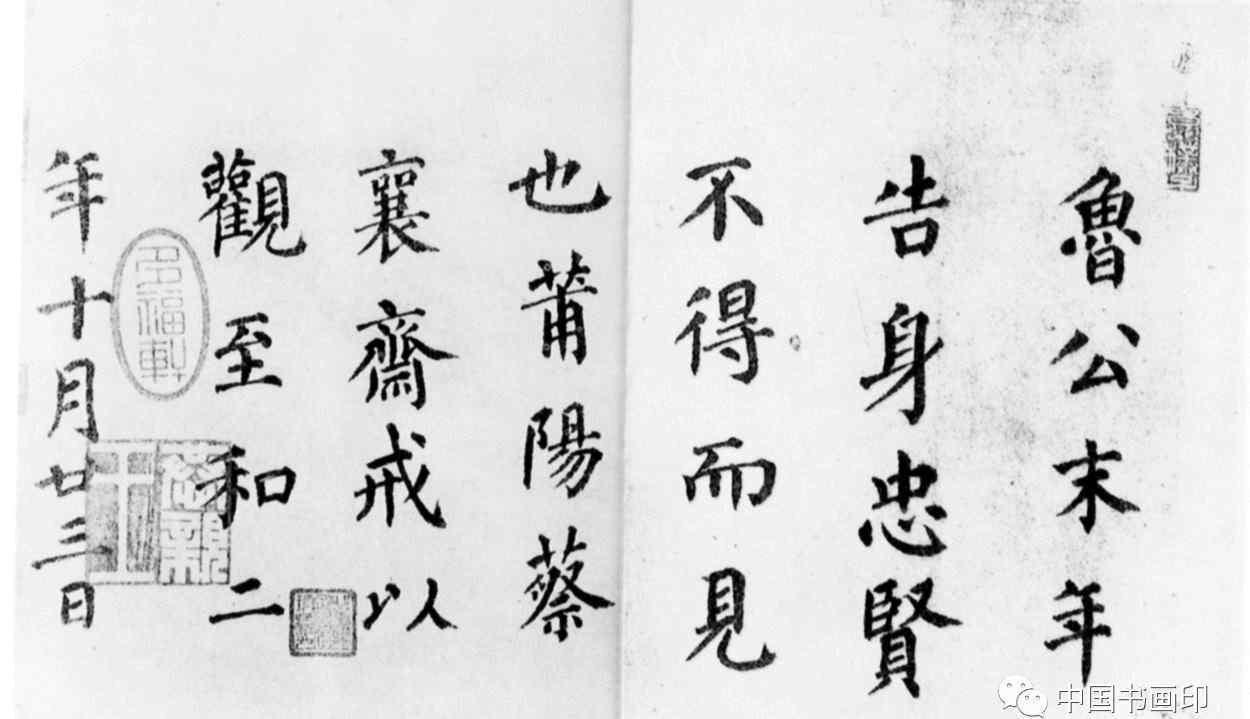 魯公末年
告身忠賢
不得而見
也莆陽蔡
襄齋戒以
觀至和二
年十月廿三日
多福軒
中国书画印